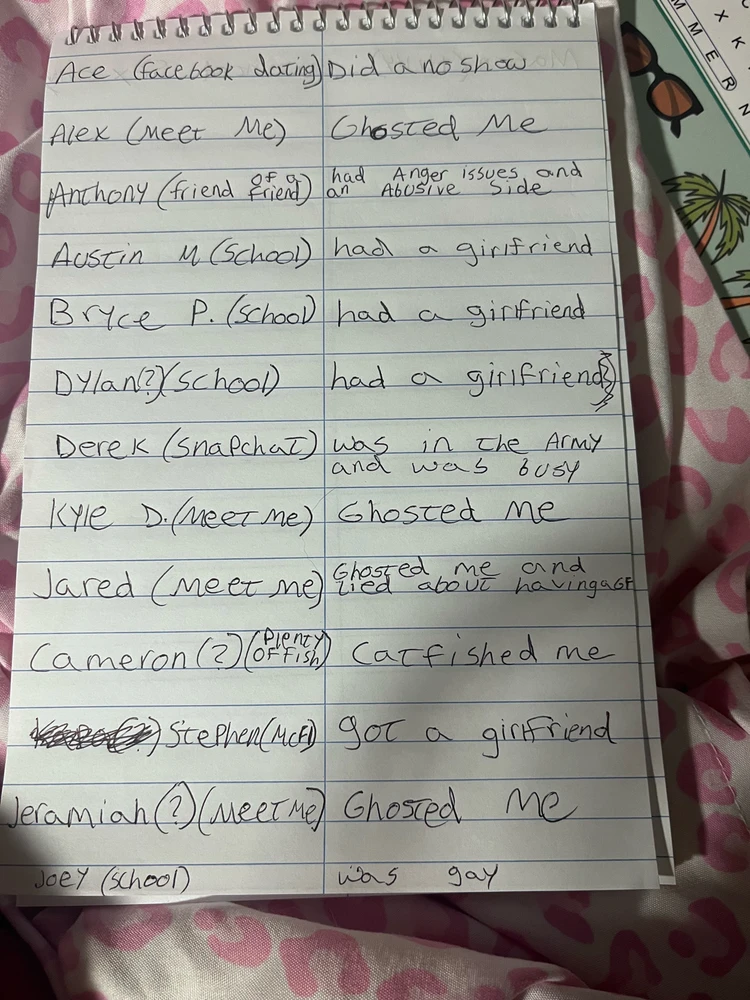 Ace (facebook dating) Did a no show
Alex (Meet Me) Ghosted Me
Anthony (friend of a friend) had Anger issues and an Abusive Side
Austin M (School) had a girlfriend
Bryce P. (School) had a girlfriend
Dylan(?)(School) had a girlfriend
Derek (Snapchat) was in the Army and was busy
Kyle D. (Meet me) Ghosted Me
Jared (Meet me) Ghosted me and lied about having a GF
Cameron (?) (Plenty of fish) Catfished me
Stephen (McFl) got a girlfriend
Jeramiah (?) (Meet Me) Ghosted Me
Joey (School) was gay
M M E R
X K